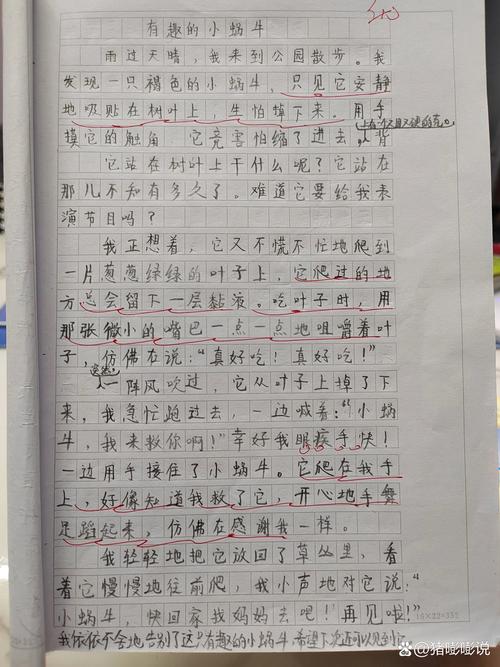 有趣的小蜗牛
雨过天晴，我来到公园散步。我
发现一只褐色的小蜗牛，只见它安静
地吸贴在树叶上，生怕掉下来。用手
上有个又旦又硬的壳。
摸它的触角，它竟害怕缩了进去，背
它站在树叶上干什么呢？它站在
那儿不知有多久了。难道它要给我表
演节目吗？
我正想着，它又不慌不忙地爬到
一片葱葱绿绿的叶子上，它爬过的地
方总会留下一层黏液。吃叶子时，用
那张微小的嘴巴一点一点地咀嚼着叶
子，仿佛在说：“真好吃！真好吃！”
突然，
一阵风吹过，它从叶子上掉了下
来，我急忙跑过去，一边喊着：“小蜗
牛，我来救你啊！”幸好我眼疾手快！
一边用手接住了小蜗牛。它爬在我手
上，好像知道我救了它，开心地手舞
足蹈起来，仿佛在感谢我一样。
我轻轻地把它放回了草丛里，看
着它慢慢地往前爬，我小声地对它说：“
小蜗牛，快回家找妈妈去吧！再见啦！”
16×22=352
我依依不舍地告别了这只有趣的小蜗牛 希望下次还可以见到它
头条 @猪嘭嘭说